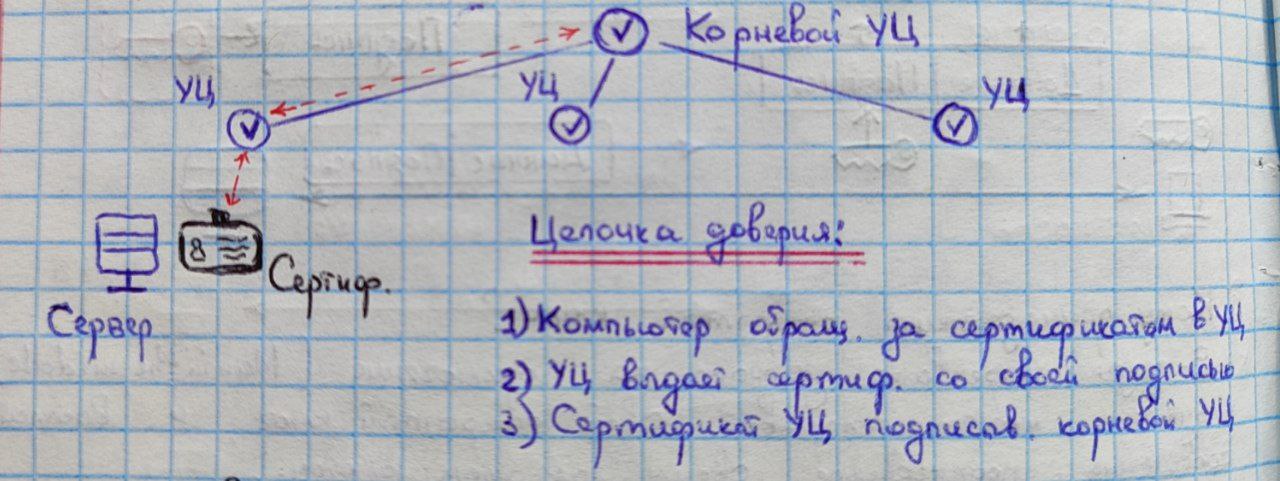 Корневой УЦ
УЦ
УЦ
УЦ
Цепочка доверия:
Сертиф.
Сервер
1) Компьютер обращ. за сертификатом в УЦ
2) УЦ выдает сертиф. со своей подписью
3) Сертификат УЦ подписыв. корневой УЦ